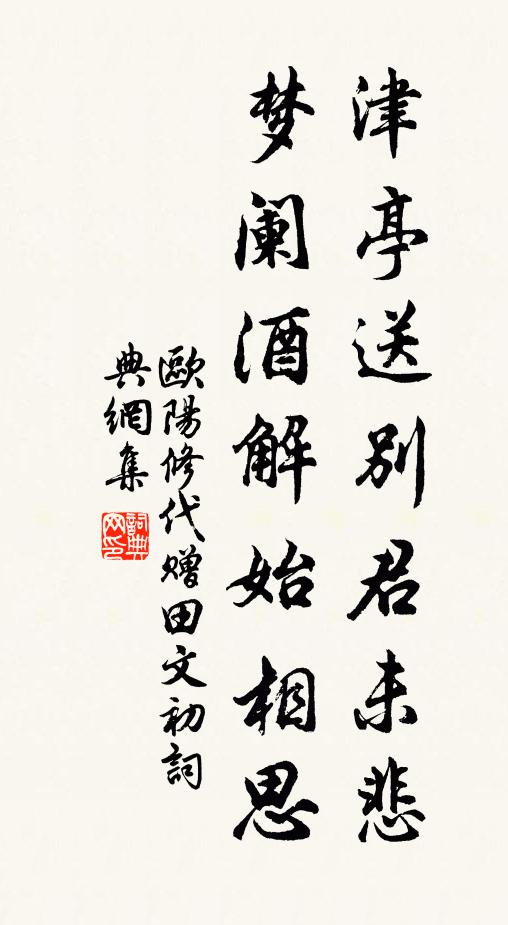 津亭送别君未悲
梦阑酒解始相思
歐陽修代赠田文初詞
典網集
詞典网印